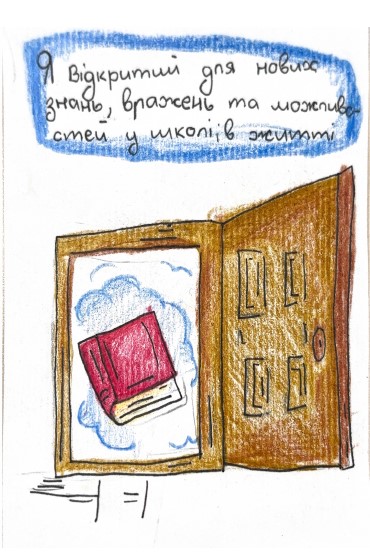 Я відкритий для нових
знань, вражень та можливо-
стей у школі і в житті